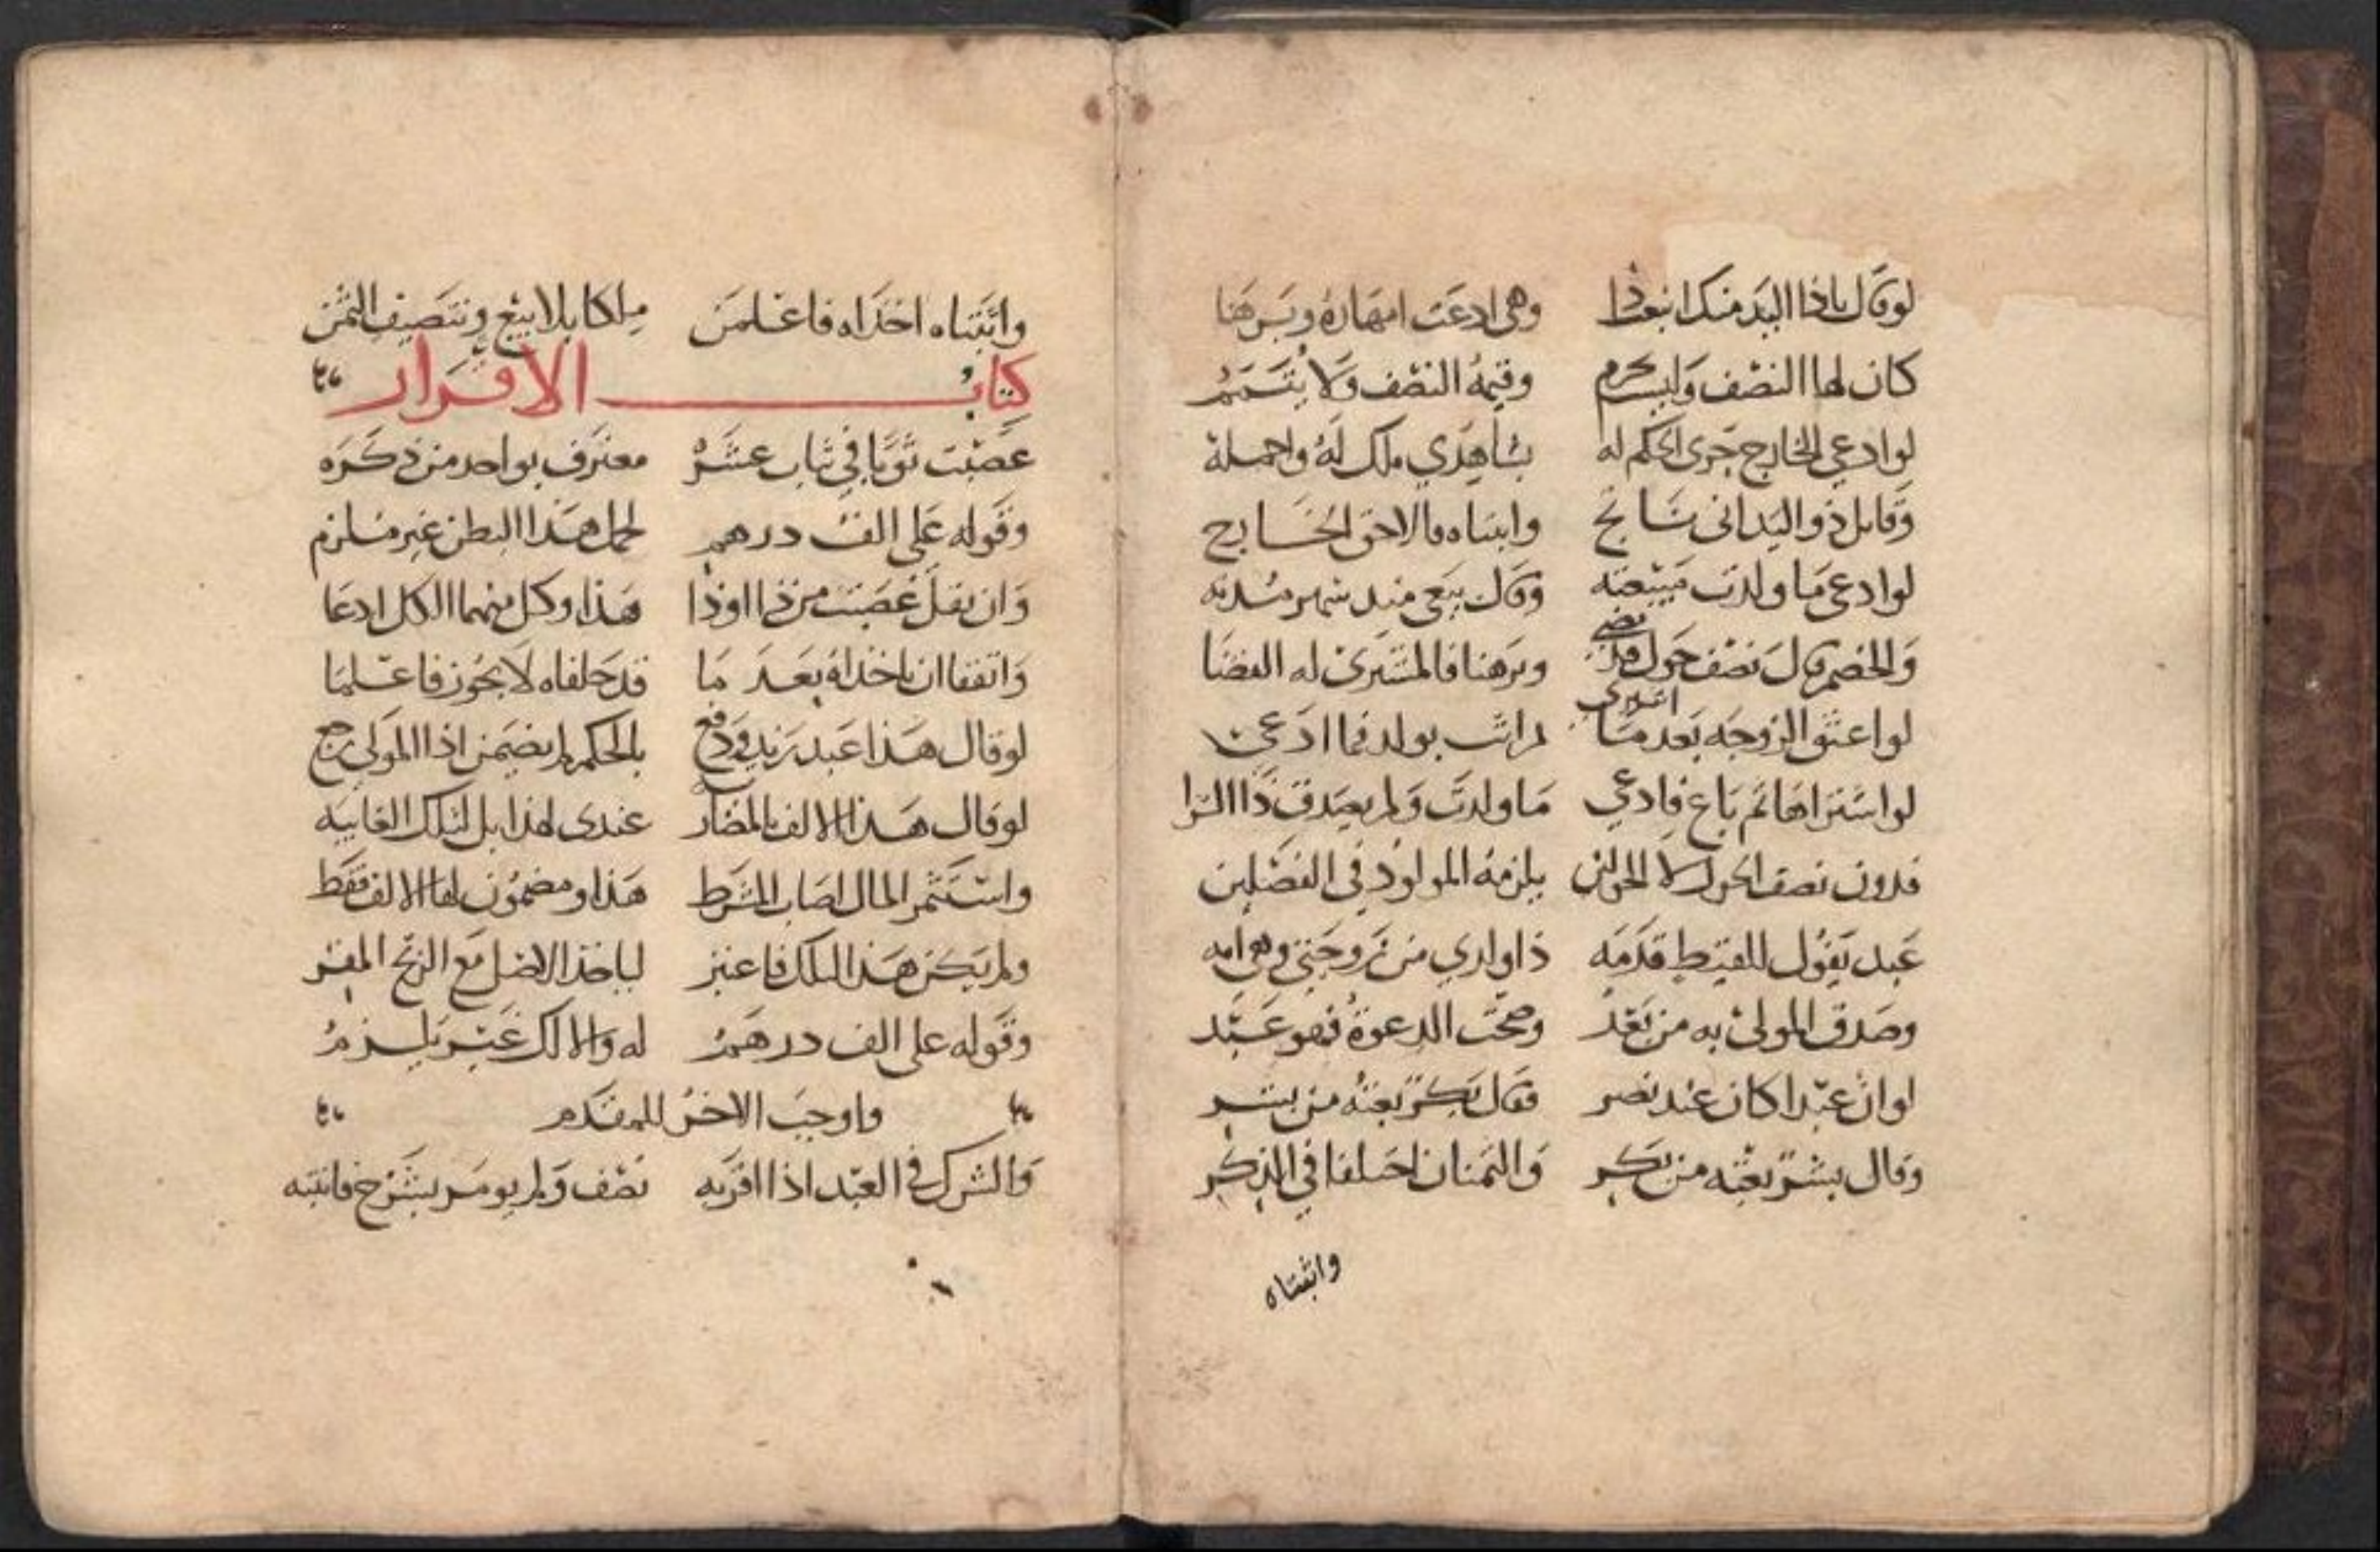 لو قال ياذا اليد منك ابتعت ذا وهي ادعت امهاره وبرهنا
كان لها النصف وليست وقيمة النصف ولا يتمم
لو ادعى الخارج جرى الحكم له بشاهدي ملك له واحمله
وقابل ذو اليد اني ناتج واثبتاه فالاحق الخارج
لو ادعى ما ولدت مبيعته وقال بيعي منذ شهر مدته
والخصم قال نصف حول قد مضى وبرهنا فالمشتري له القضا
لو اعتق الزوجة بعد ما اشترى لم اثب بولد فما ادعى
لو اشتراها ثم باع فادعى ما ولدت ولم يصدق ذا الشرا
فدون نصف الحول لا الحولين يلزمه المولود في الفصلين
عبد يقول للقيط قدمه ذا ولدي من زوجتي وهي امه
وصدق المولى به من بعد وصحت الدعوة فهو عبد
لو ان عبدا كان عند نصر فقال بكر بعته من بشر
وقال بشر بعته من بكر والثمنان اختلفا في الذكر
واثبتاه
واثبتاه اخذاه فاعلمن ملكا بلا بيع وتنصيف الثمن
كتاب الاقرار
غصبت ثوبا في ثياب عشره معترف بواحد من ذكره
وقوله علي الف درهم لحمل هذا البطن غير ملزم
وان يقل غصبت من ذا او ذا هذا وكل منهما الكل ادعا
واتفقا ان ياخذاه بعد ما قد حلفاه لا يجوز فاعلما
لو قال هذا عبد زيد ودفع بالحكم لم يضمن اذا المولى رجع
لو قال هذا الالف بالمضاربه عندي لهذا بل لتلك الغايبه
واستثمر المال اصاب المشترط هذا ومضمون لها الالف فقط
ولم يكن هذا لتلك فاعتبر لياخذ الاصل مع الربح المقر
وقوله علي الف درهم له والا لك غير يلزم
واوجب الاخر للمقدم
والشرك في العبد اذا اقر به نصف ولم يومر بشرح فانتبه